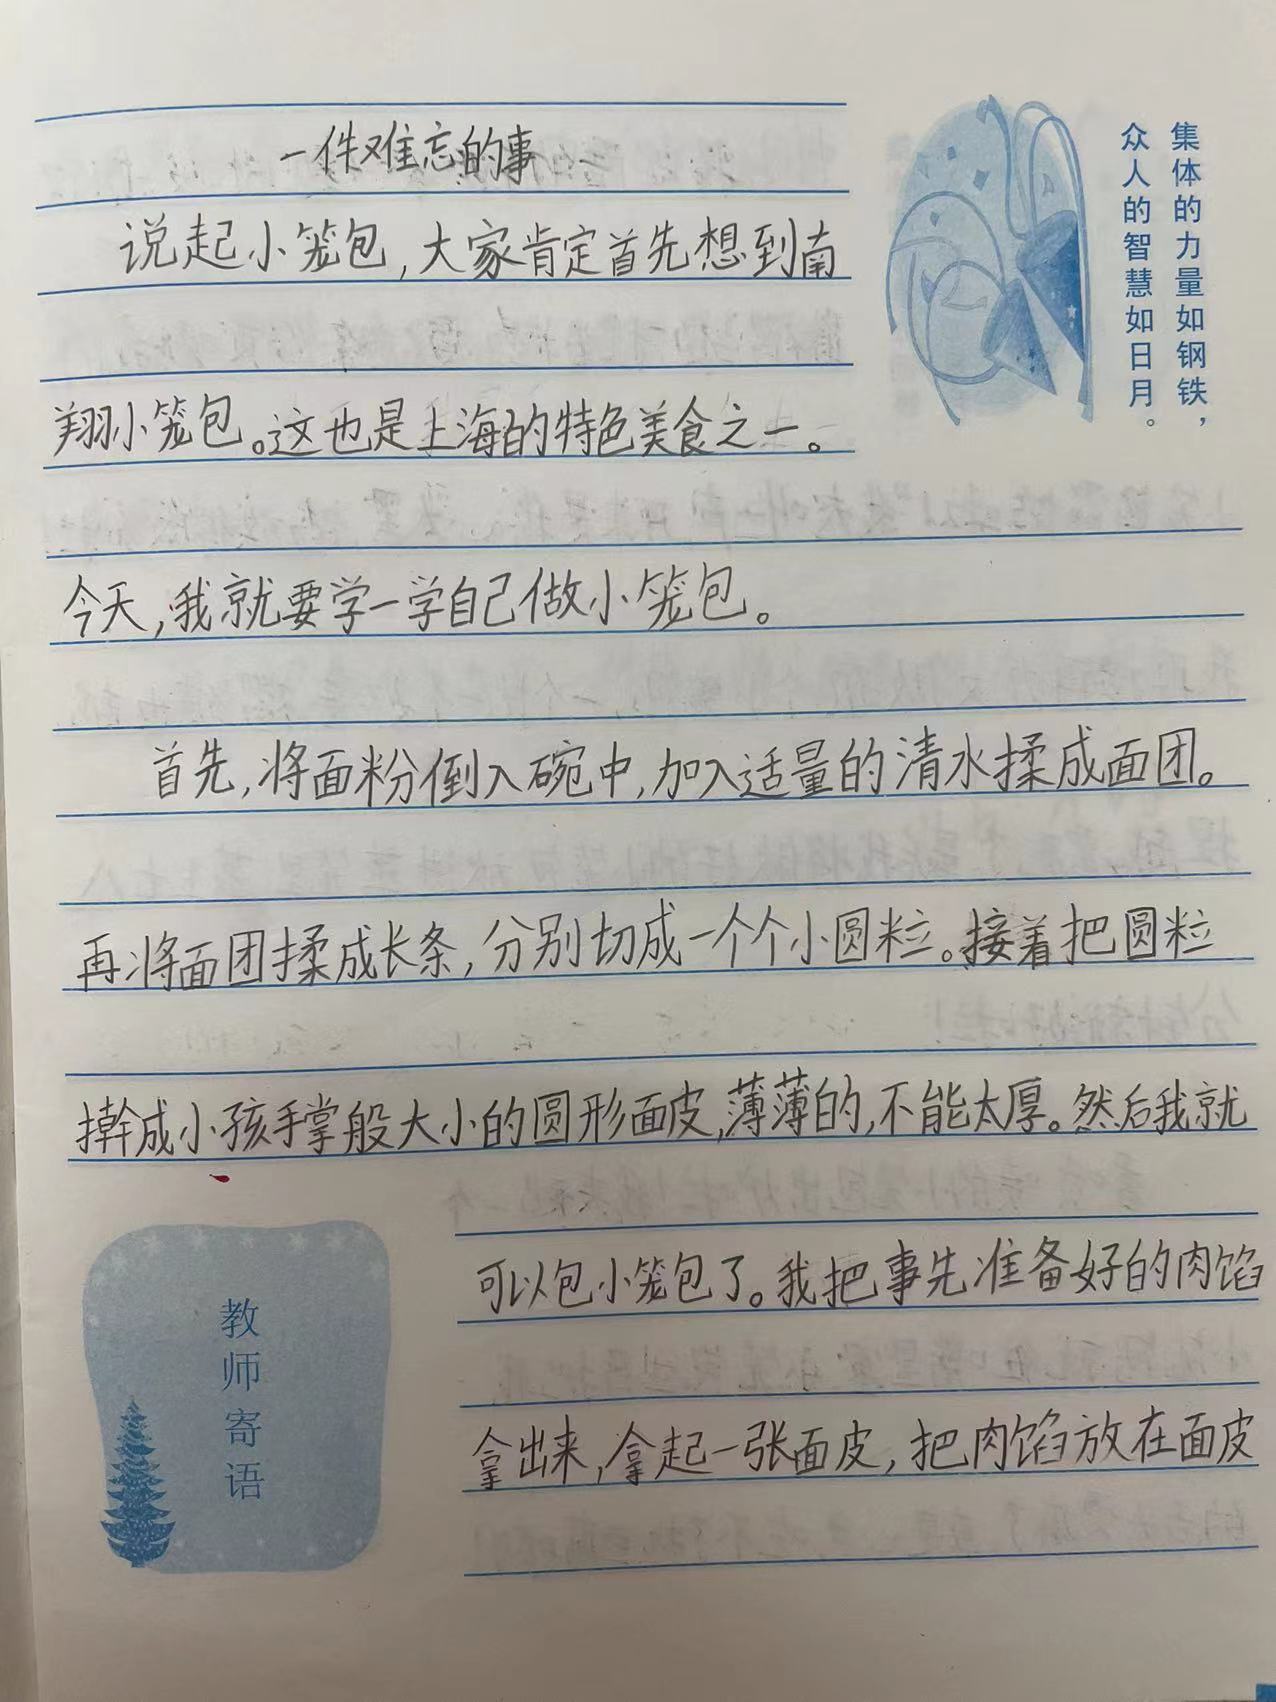 一件难忘的事
说起小笼包,大家肯定首先想到南
翔小笼包。这也是上海的特色美食之一。
今天,我就要学一学自己做小笼包。
首先,将面粉倒入碗中,加入适量的清水揉成面团。
再将面团揉成长条,分别切成一个个小圆粒。接着把圆粒
擀成小孩手掌般大小的圆形面皮,薄薄的,不能太厚。然后我就
可以包小笼包了。我把事先准备好的肉馅
拿出来,拿起一张面皮,把肉馅放在面皮
集体的力量如钢铁,
众人的智慧如日月。
教师寄语